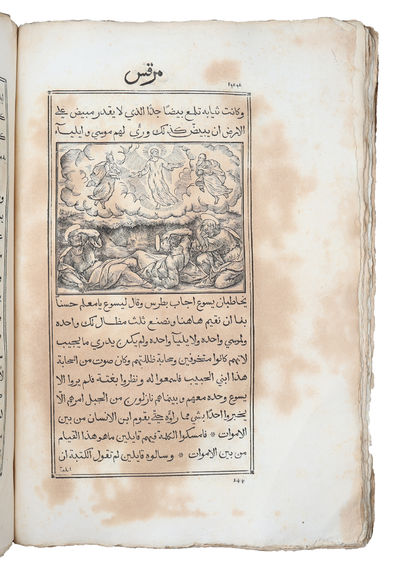 مرقس
وكانت ثيابه تلمع بيضا جدا الذي لا يقدر مبيض على
الارض ان يبيض كذلك ورئى لهم موسى وايليا
يخاطبان يسوع اجاب بطرس وقال ليسوع يا معلم حسنا
بنا ان نقيم هاهنا ونصنع ثلث مظال لك واحده
ولموسى واحده ولايليا واحده ولم يكن يدري ما يجيب
لانهم كانوا متخوفين وسحابة ظللتهم وكان صوت من السحابة
هذا ابني الحبيب فاسمعوا له ونظروا بغتة فلم يروا الا
يسوع وحده معهم وبينما هم نازلون من الجبل امرهم الا
يخبروا احدا بشي مما راوه حتى يقوم ابن الانسان من بين
الاموات * فامسكوا الكلمة فيهم قايلين ما هو هذا القيام
من بين الاموات * وسالوه قايلين لم تقول الكتبة ان